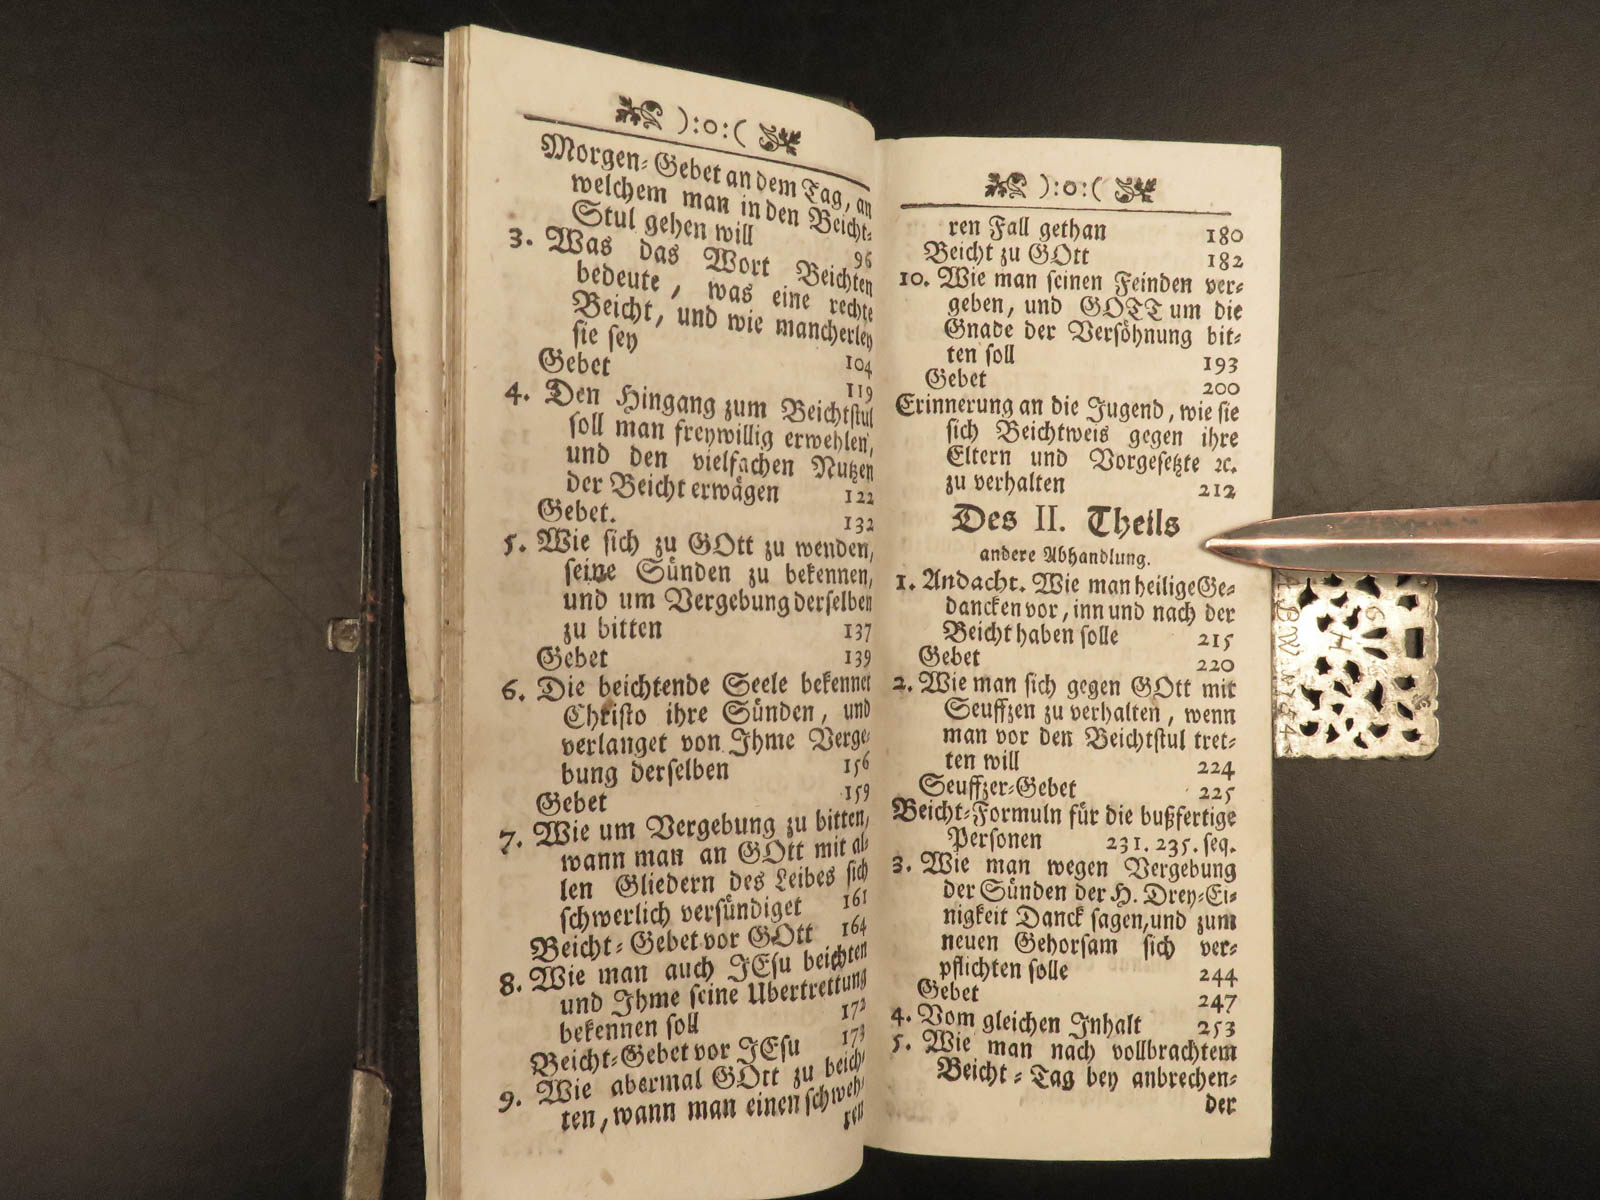 ):o:(
Morgen-Gebet an dem Tag, an
welchem man in den Beicht-
Stul gehen will 96
3. Was das Wort Beichten
bedeute, was eine rechte
Beicht, und wie mancherley
sie sey 104
Gebet 119
4. Den Hingang zum Beichtstul
soll man freywillig erwehlen,
und den vielfachen Nutzen
der Beicht erwägen 122
Gebet. 132
5. Wie sich zu GOtt zu wenden,
seine Sünden zu bekennen,
und um Vergebung derselben
zu bitten 137
Gebet 139
6. Die beichtende Seele bekennet
Christo ihre Sünden, und
verlanget von Ihme Verge-
bung derselben 156
Gebet 159
7. Wie um Vergebung zu bitten,
wann man an GOtt mit al-
len Gliedern des Leibes sich
schwerlich versündiget 161
Beicht-Gebet vor GOtt 164
8. Wie man auch JEsu beichten
und Ihme seine Ubertrettung
bekennen soll 172
Beicht-Gebet vor JEsu 173
9. Wie abermal GOtt zu beich-
ten, wann man einen schweh-
ren
):o:(
ren Fall gethan 180
Beicht zu GOtt 182
10. Wie man seinen Feinden ver-
geben, und GOTT um die
Gnade der Versöhnung bit-
ten soll 193
Gebet 200
Erinnerung an die Jugend, wie sie
sich Beichtweis gegen ihre
Eltern und Vorgesetzte ꝛc.
zu verhalten 212
Des II. Theils
andere Abhandlung.
1. Andacht. Wie man heilige Ge-
dancken vor, inn und nach der
Beicht haben solle 215
Gebet 220
2. Wie man sich gegen GOtt mit
Seuffzen zu verhalten, wenn
man vor den Beichtstul tret-
ten will 224
Seuffzer-Gebet 225
Beicht-Formuln für die bußfertige
Personen 231. 235. seq.
3. Wie man wegen Vergebung
der Sünden der H. Drey-Ei-
nigkeit Danck sagen, und zum
neuen Gehorsam sich ver-
pflichten solle 244
Gebet 247
4. Vom gleichen Inhalt 253
5. Wie man nach vollbrachtem
Beicht-Tag bey anbrechen-
der